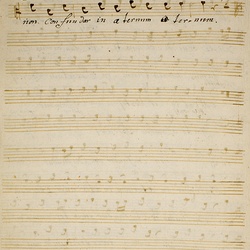 non. Confundar in æternum æternum.